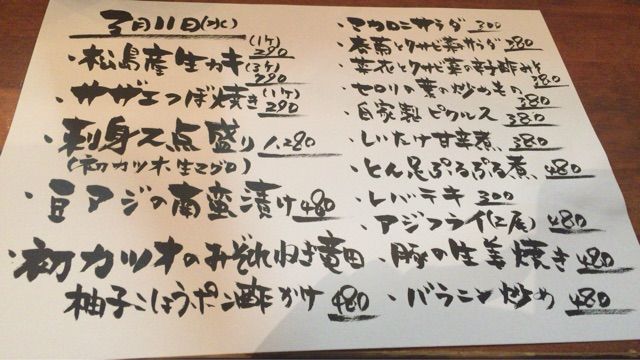 3月11日(水)
・松島産生カキ (1ケ) 290
(3ケ) 790
・サザエつぼ焼き (1ケ) 290
・刺身2点盛り 1,280
(初カツオ、生マグロ)
・豆アジの南蛮漬け 480
・初カツオのみぞれねぎ竜田
柚子こしょうポン酢かけ 480
・マカロニサラダ 300
・春菊とワサビ菜サラダ 380
・菜花とワサビ菜の辛子酢みそ 380
・セロリの葉の炒めもの 380
・自家製ピクルス 380
・しいたけ甘辛煮 380
・とん足ぷるぷる煮 480
・レバテキ 300
・アジフライ(2尾) 480
・豚の生姜焼き 480
・バラニン炒め 480